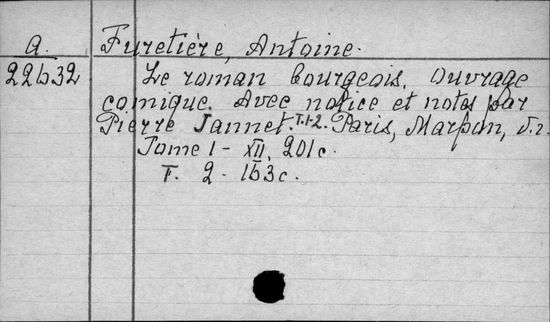 a. Furetière, Antoine.
22632 Le roman bourgeois. Ouvrage
comique. Avec notice et notes par
Pierre Jannet. T.1-2. Paris, Marpon, s.a.
Tome 1 - XII, 201c.
T. 2 - 163c.